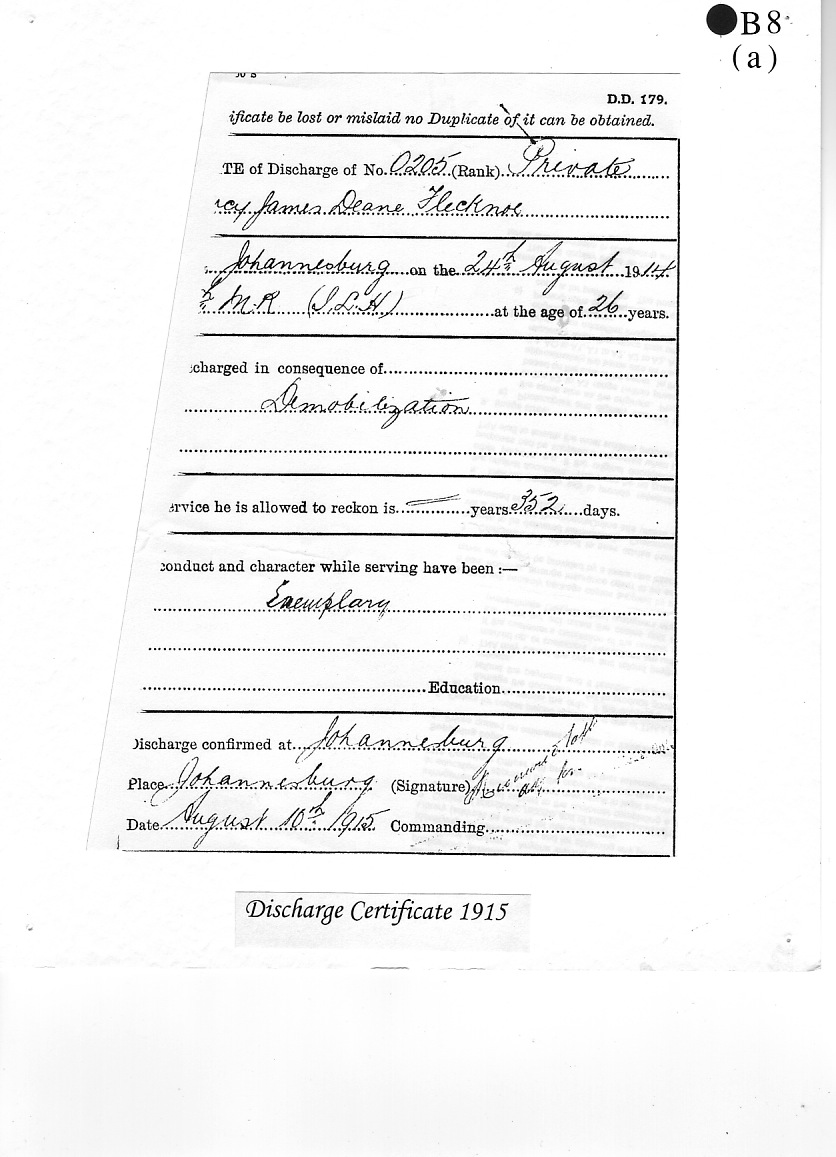 B8
(a)
D.D. 179.
ificate be lost or mislaid no Duplicate of it can be obtained.
TE of Discharge of No. 0205 (Rank) Private
rcy James Deane Flecknoe
Johannesburg on the 24th August 1914
h M.R (I.L.H) at the age of 26 years.
charged in consequence of
Demobilization
ervice he is allowed to reckon is years 352 days.
conduct and character while serving have been :—
Exemplary
Education
Discharge confirmed at Johannesburg
Place Johannesburg (Signature)
Date August 10th 1915 Commanding
Discharge Certificate 1915